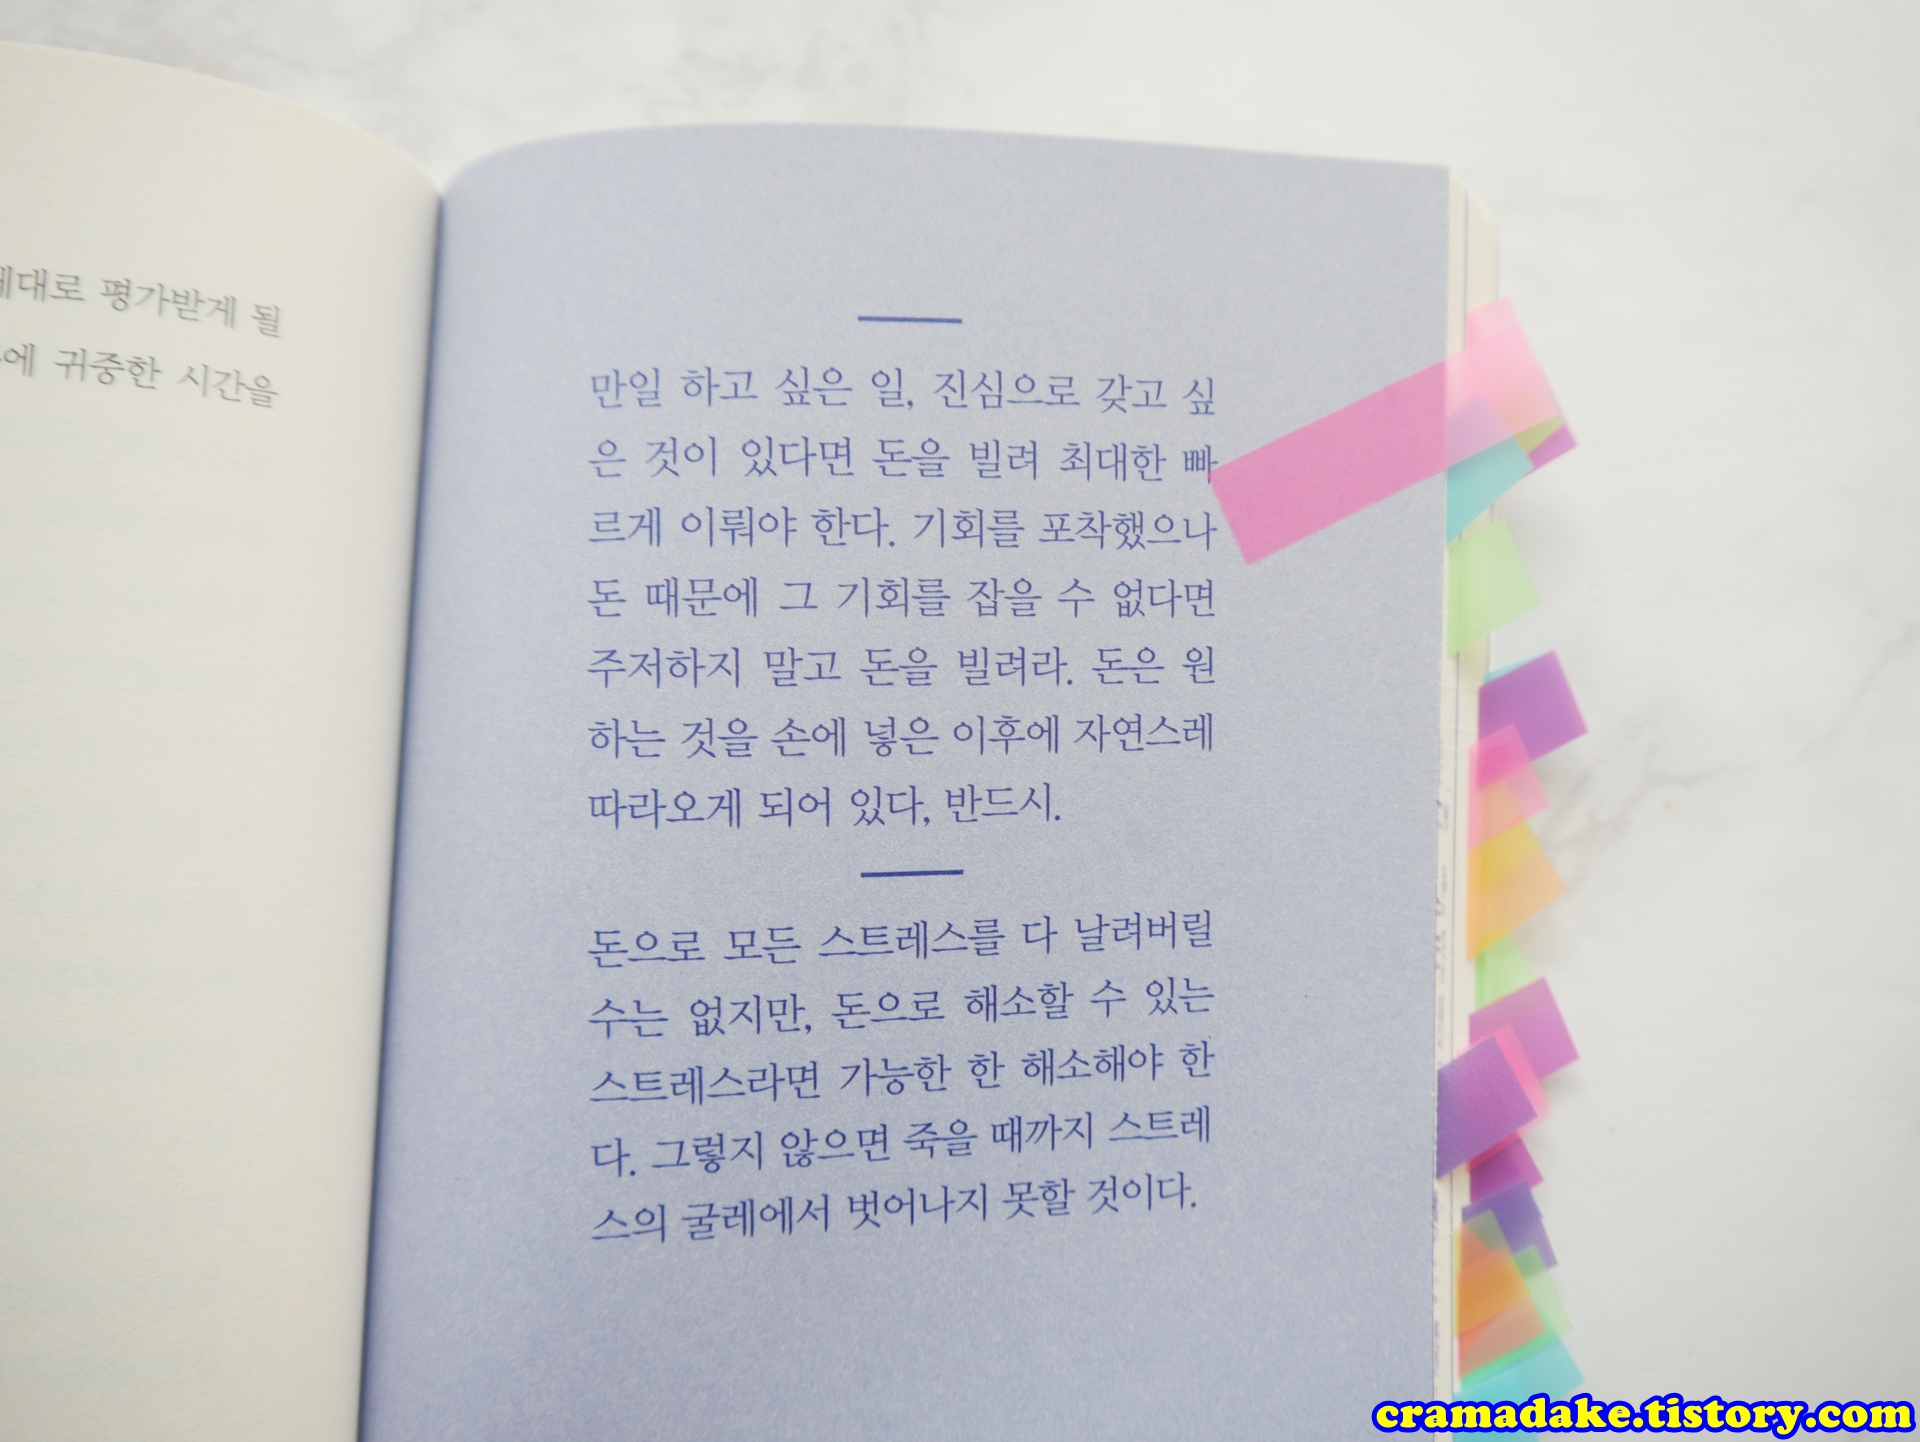 평가받게 될
귀중한 시간을
만일 하고 싶은 일, 진심으로 갖고 싶
은 것이 있다면 돈을 빌려 최대한 빠
르게 이뤄야 한다. 기회를 포착했으나
돈 때문에 그 기회를 잡을 수 없다면
주저하지 말고 돈을 빌려라. 돈은 원
하는 것을 손에 넣은 이후에 자연스레
따라오게 되어 있다, 반드시.
돈으로 모든 스트레스를 다 날려버릴
수는 없지만, 돈으로 해소할 수 있는
스트레스라면 가능한 한 해소해야 한
다. 그렇지 않으면 죽을 때까지 스트레
스의 굴레에서 벗어나지 못할 것이다.
cramadake.tistory.com